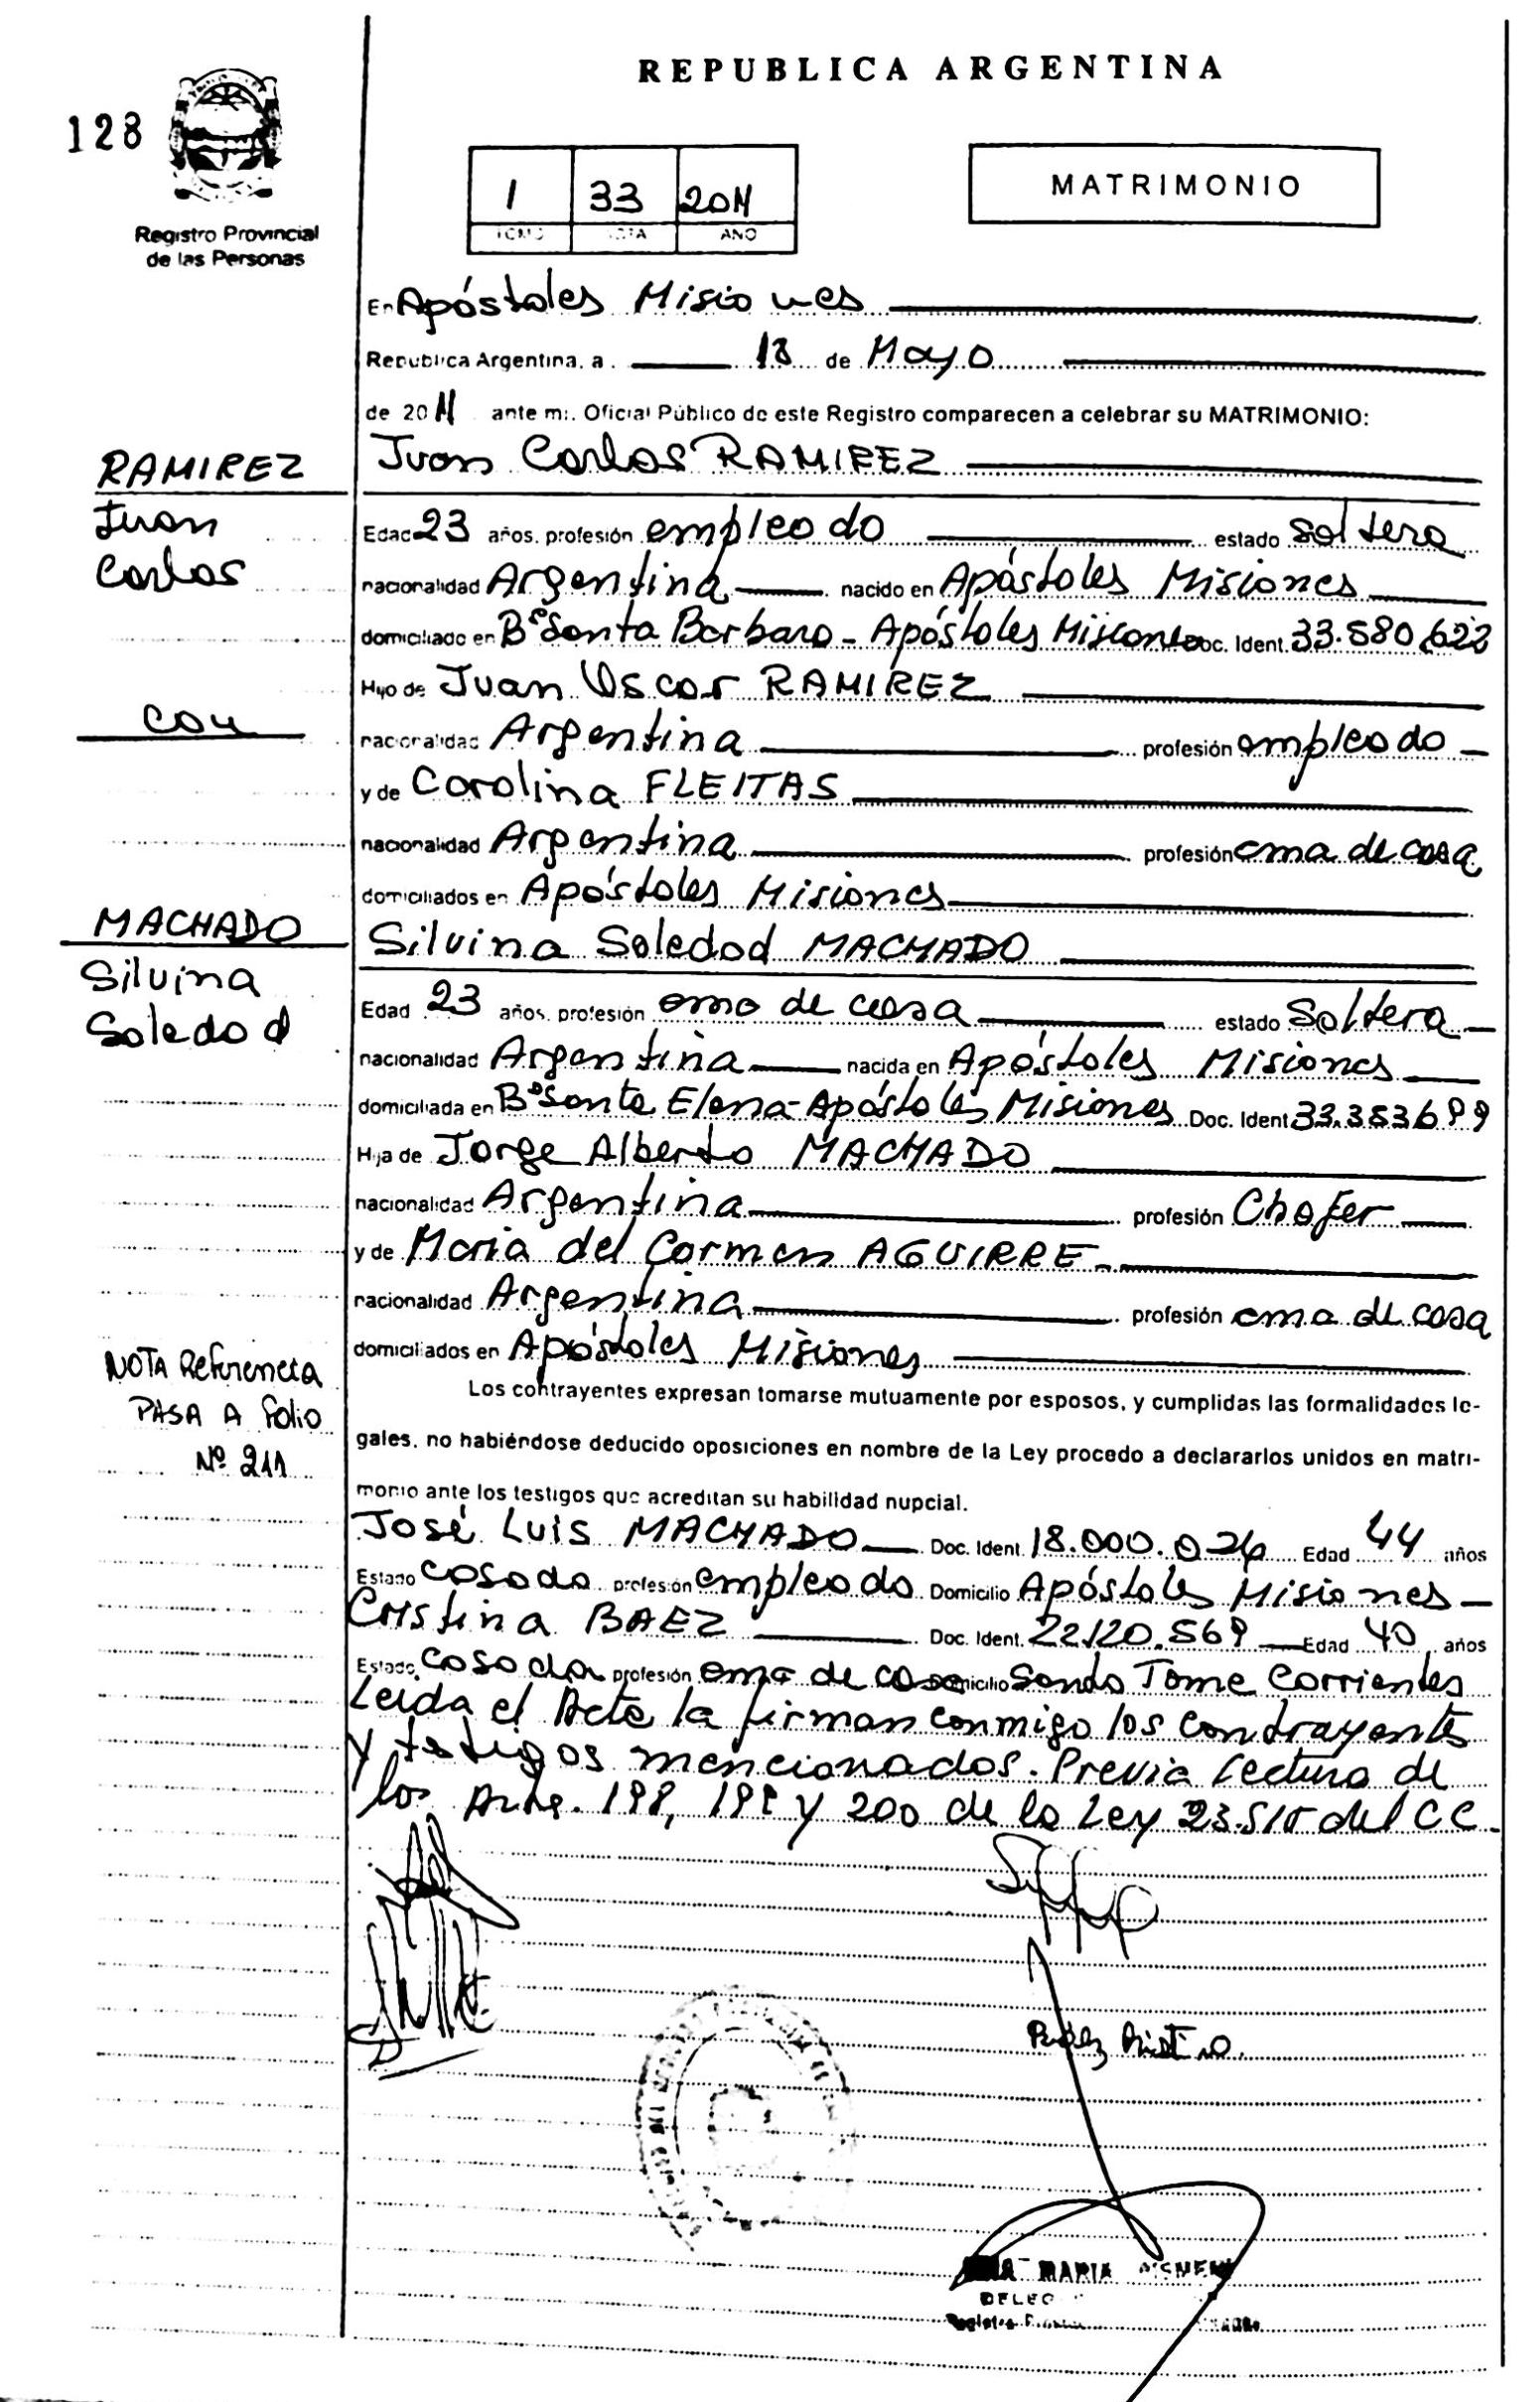 REPUBLICA ARGENTINA
128
MATRIMONIO
1 33 2011
TOMO ACTA AÑO
Registro Provincial
de las Personas
En Apóstoles Misiones
Republica Argentina, a 18 de Mayo
de 2011 ante mi. Oficial Público de este Registro comparecen a celebrar su MATRIMONIO:
RAMIREZ
Juan
Carlos
con
MACHADO
Silvina
Soledad
NOTA Referencia
PASA A folio
Nº 211
Juan Carlos RAMIREZ
Edad 23 años. profesión empleado estado soltera
nacionalidad Argentina nacido en Apóstoles Misiones
domiciliado en Bº Santa Barbara - Apóstoles Misiones Doc. Ident. 33.580.622
Hijo de Juan Oscar RAMIREZ
nacionalidad Argentina profesión empleado
y de Carolina FLEITAS
nacionalidad Argentina profesión ama de casa
domiciliados en Apóstoles Misiones
Silvina Soledad MACHADO
Edad 23 años. profesión ama de casa estado Soltera
nacionalidad Argentina nacida en Apóstoles Misiones
domiciliada en Bº Santa Elena - Apóstoles Misiones Doc. Ident.
Hija de Jorge Alberto MACHADO
nacionalidad Argentina profesión Chofer
y de Maria del Carmen AGUIRRE
nacionalidad Argentina profesión ama de casa
domiciliados en Apóstoles Misiones
Los contrayentes expresan tomarse mutuamente por esposos, y cumplidas las formalidades le-
gales, no habiéndose deducido oposiciones en nombre de la Ley procedo a declararlos unidos en matri-
monio ante los testigos que acreditan su habilidad nupcial.
José Luis MACHADO Doc. Ident. 18.000.026 Edad 44 años
Estado Casado profesión empleado Domicilio Apóstoles Misiones
Cristina BAEZ Doc. Ident. 22.120.569 Edad 40 años
Estado Casada profesión ama de casa Domicilio Santo Tome Corrientes
Leida el Acta la firman conmigo los contrayentes
y testigos mencionados. Previa Lectura de
los Arts. 198, 199 y 200 de la Ley 23.515 del CC.
MARIA
DELEG